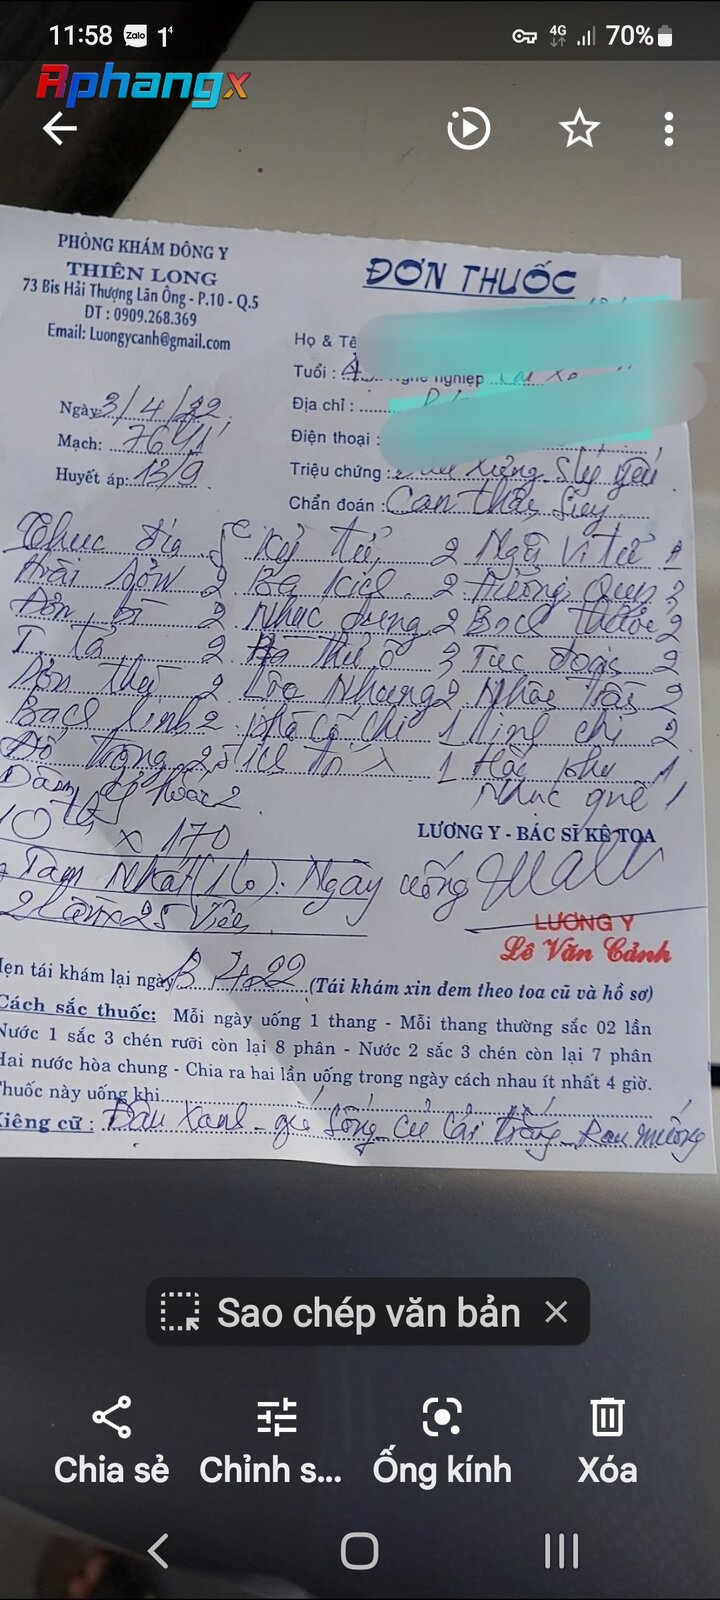 11:58 Zalo 1⁴ 4G 70%
Rphangx
PHÒNG KHÁM ĐÔNG Y
THIÊN LONG
73 Bis Hải Thượng Lãn Ông - P.10 - Q.5
ĐT : 0909.268.369
Email: Luongycanh@gmail.com
ĐƠN THUỐC
Họ & Tê
Tuổi : 4 nghiệp
Địa chỉ :
Điện thoại :
Ngày 3/4/22
Mạch: 76
Huyết áp: 13/9
Triệu chứng : xưng slý yếu
Chẩn đoán : Can thận suy
Thục địa 5 Kỷ tử 2 Ngũ vị tử 1
Hoài sơn 2 Ba kích 2
Đơn bì 2 Nhục dung 2 Bạch thước 2
T. tả 2 Hà thủ ô 3 Tục đoạn 2
2 Lộc Nhung 2 Nhân sâm 2
Bạch linh 2 Phá cố chỉ 1 linh chi 2
Đỗ trọng 2 1 Hắc phụ 1
2 Nhục quế 1
10 x 170
LƯƠNG Y - BÁC SĨ KÊ TOA
Tam Nhất (1 lọ). Ngày uống
2 lần x 25 viên
LƯƠNG Y
Lê Văn Cảnh
Hẹn tái khám lại ngày 22 (Tái khám xin đem theo toa cũ và hồ sơ)
Cách sắc thuốc: Mỗi ngày uống 1 thang - Mỗi thang thường sắc 02 lần
Nước 1 sắc 3 chén rưỡi còn lại 8 phân - Nước 2 sắc 3 chén còn lại 7 phân
Hai nước hòa chung - Chia ra hai lần uống trong ngày cách nhau ít nhất 4 giờ.
Thuốc này uống khi
Kiêng cữ : Đậu xanh - giá sống - củ cải trắng - Rau muống
Sao chép văn bản
Chia sẻ Chỉnh s... Ống kính Xóa